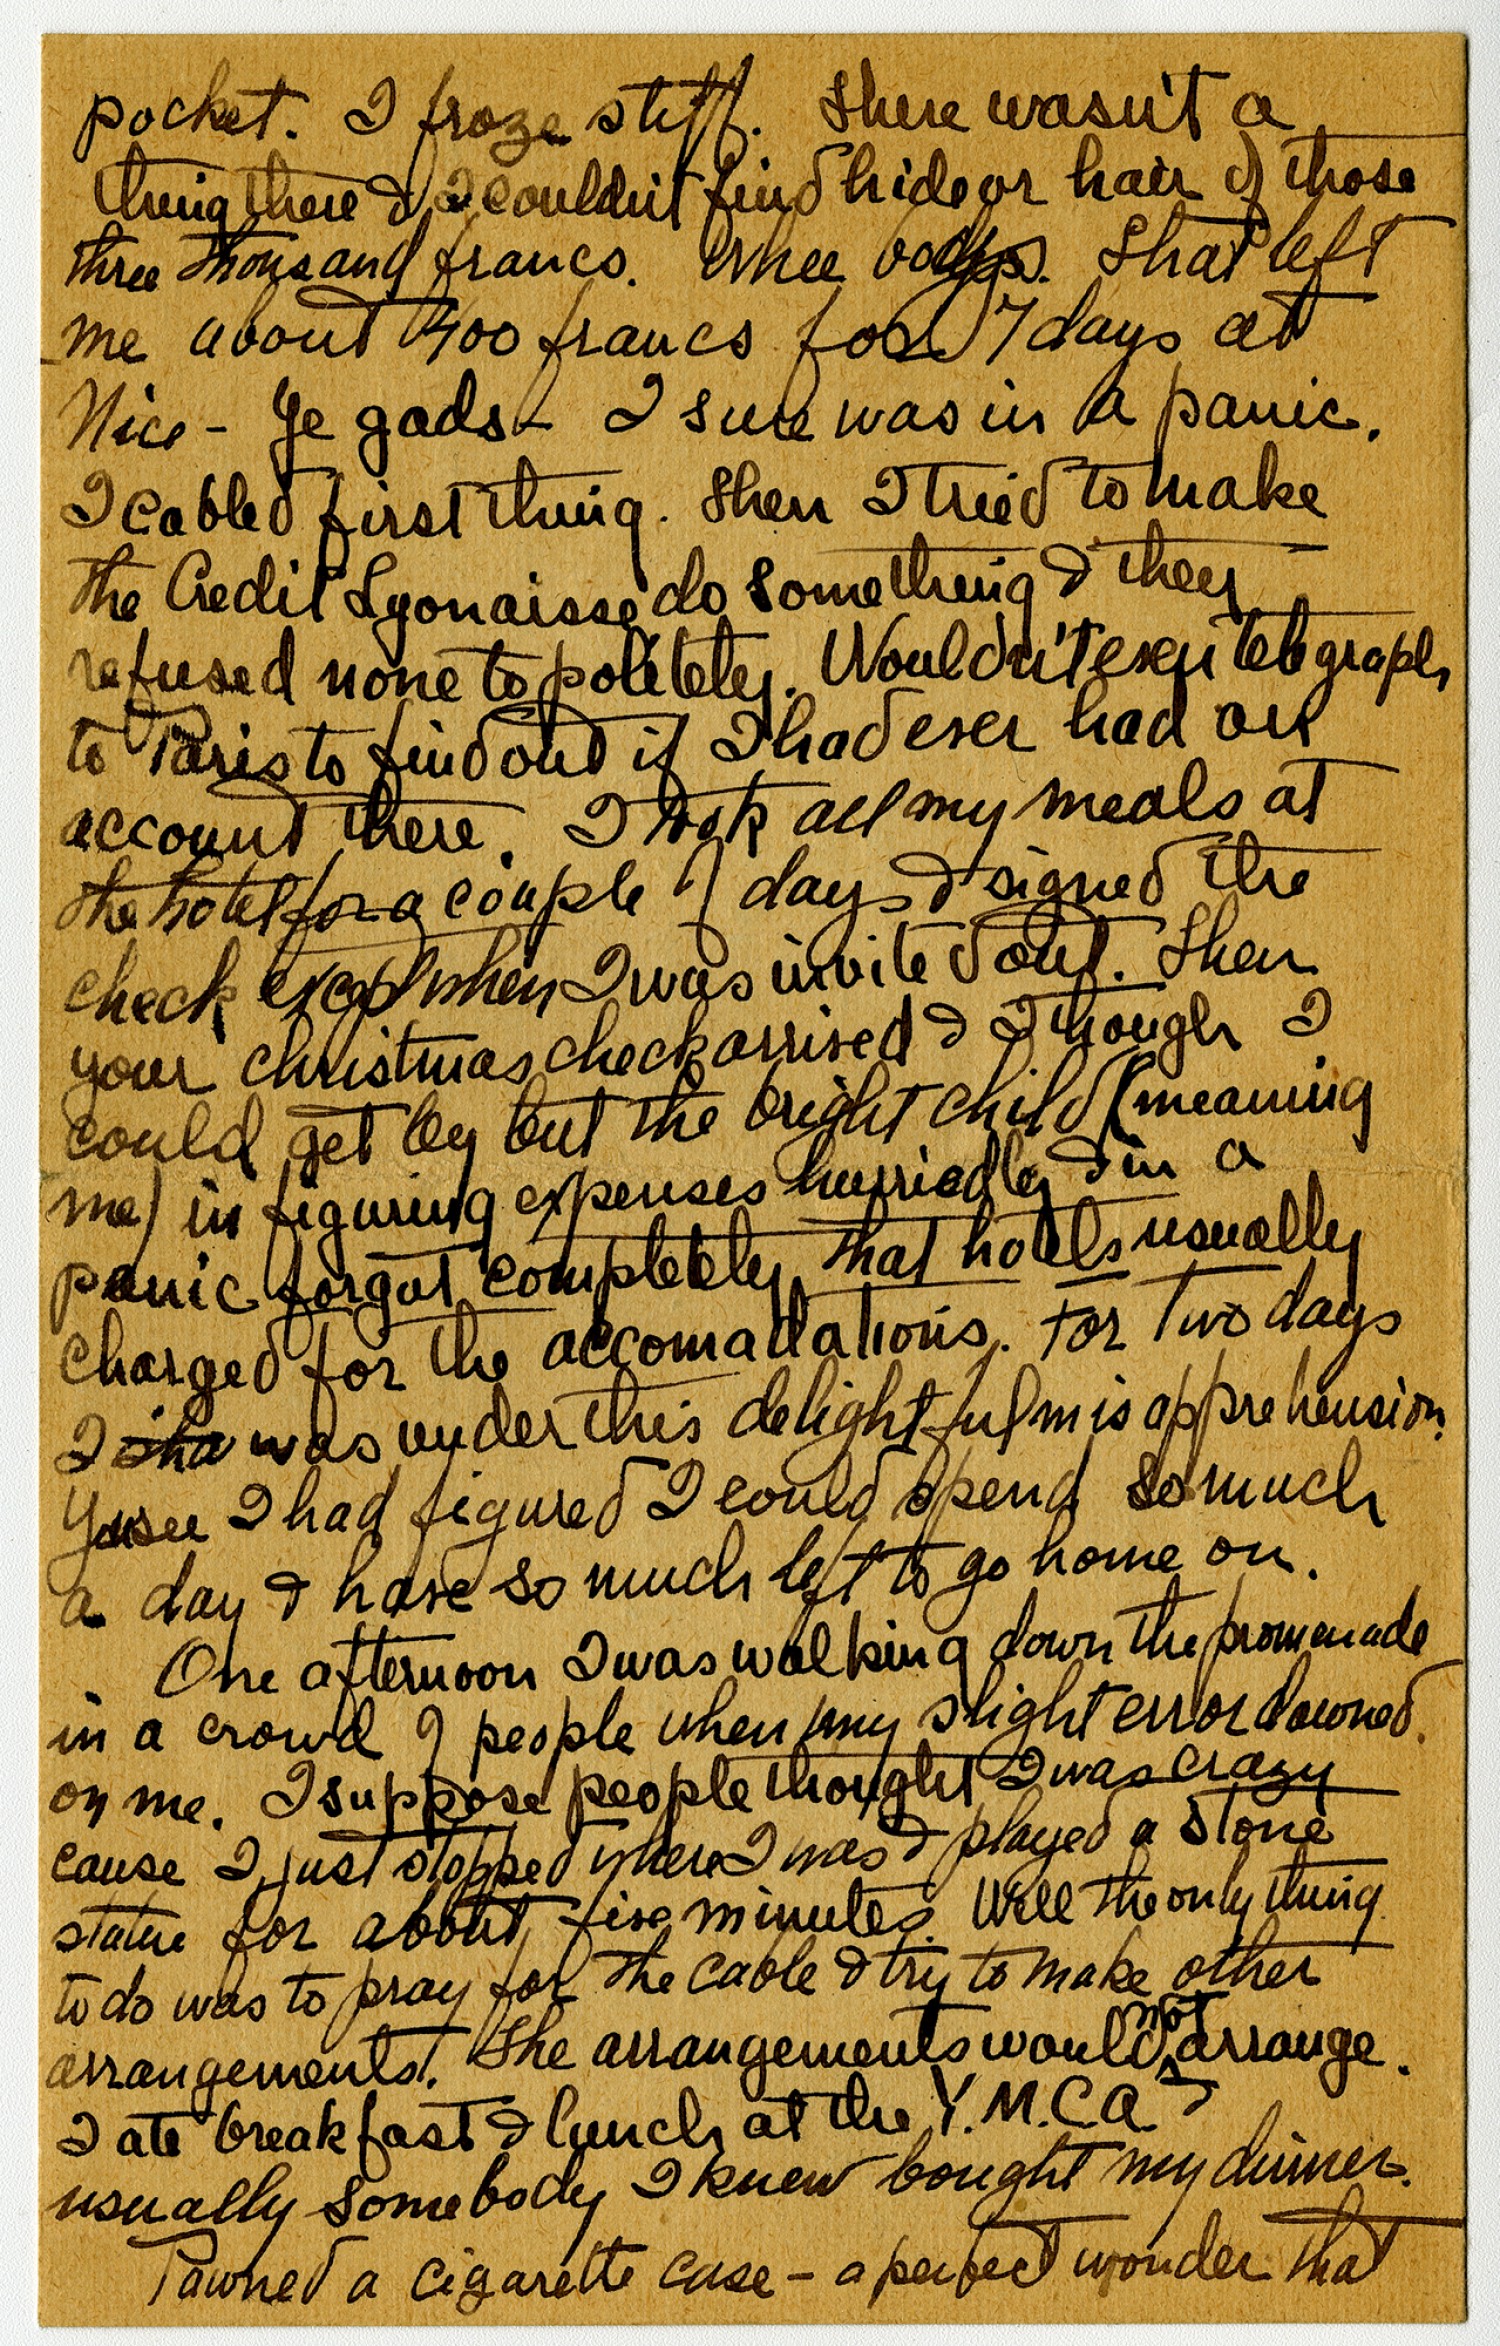 pocket. I froze stiff. There wasn't a
thing there & I couldn't find hide or hair of those
three thousand francs. Whee boys. That left
me about 400 francs for 7 days at
Nice - Ye gads - I sure was in a panic.
I cabled first thing. Then I tried to make
the Credit Lyonaisse do something & they
refused none to politely. Wouldn't even telegraph
to Paris to find out if I had ever had an
account there. I took all my meals at
the hotel for a couple of days & signed the
check except when I was invited out. Then
your christmas check arrived & I though I
could get by but the bright child (meaning
me) in figuring expenses hurriedly & in a
panic forgot completely that hotels usually
charged for the accomadations. For two days
I was under this delightful misapprehension.
You see I had figured I could spend so much
a day & have so much left to go home on.
One afternoon I was walking down the promenade
in a crowd of people when my slight error dawned
on me. I suppose people thought I was crazy
cause I just stopped where I was & played a stone
statue for about five minutes. Well the only thing
to do was to pray for the cable & try to make other
arrangements. The arrangements would not arrange.
I ate breakfast & lunch at the Y.M.C.A &
usually somebody I knew bought my dinner.
Pawned a cigarette case - a perfect wonder that